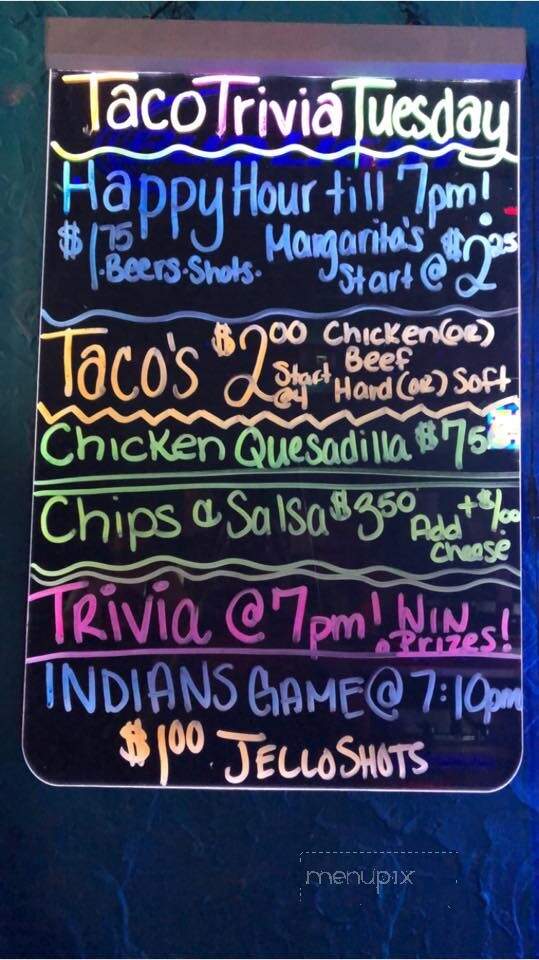 Taco Trivia Tuesday
Happy Hour till 7pm!
$1.75 Margarita's $2.25
•Beers•Shots• Start @
Taco's $2.00 Chicken (or)
Start Beef
@4 Hard (or) Soft
Chicken Quesadilla $7.5
Chips & Salsa $3.50 +$1.00
Add
Cheese
Trivia @ 7pm! WIN
Prizes!
INDIANS GAME @ 7:10pm
$1.00 JELLO SHOTS
menupix